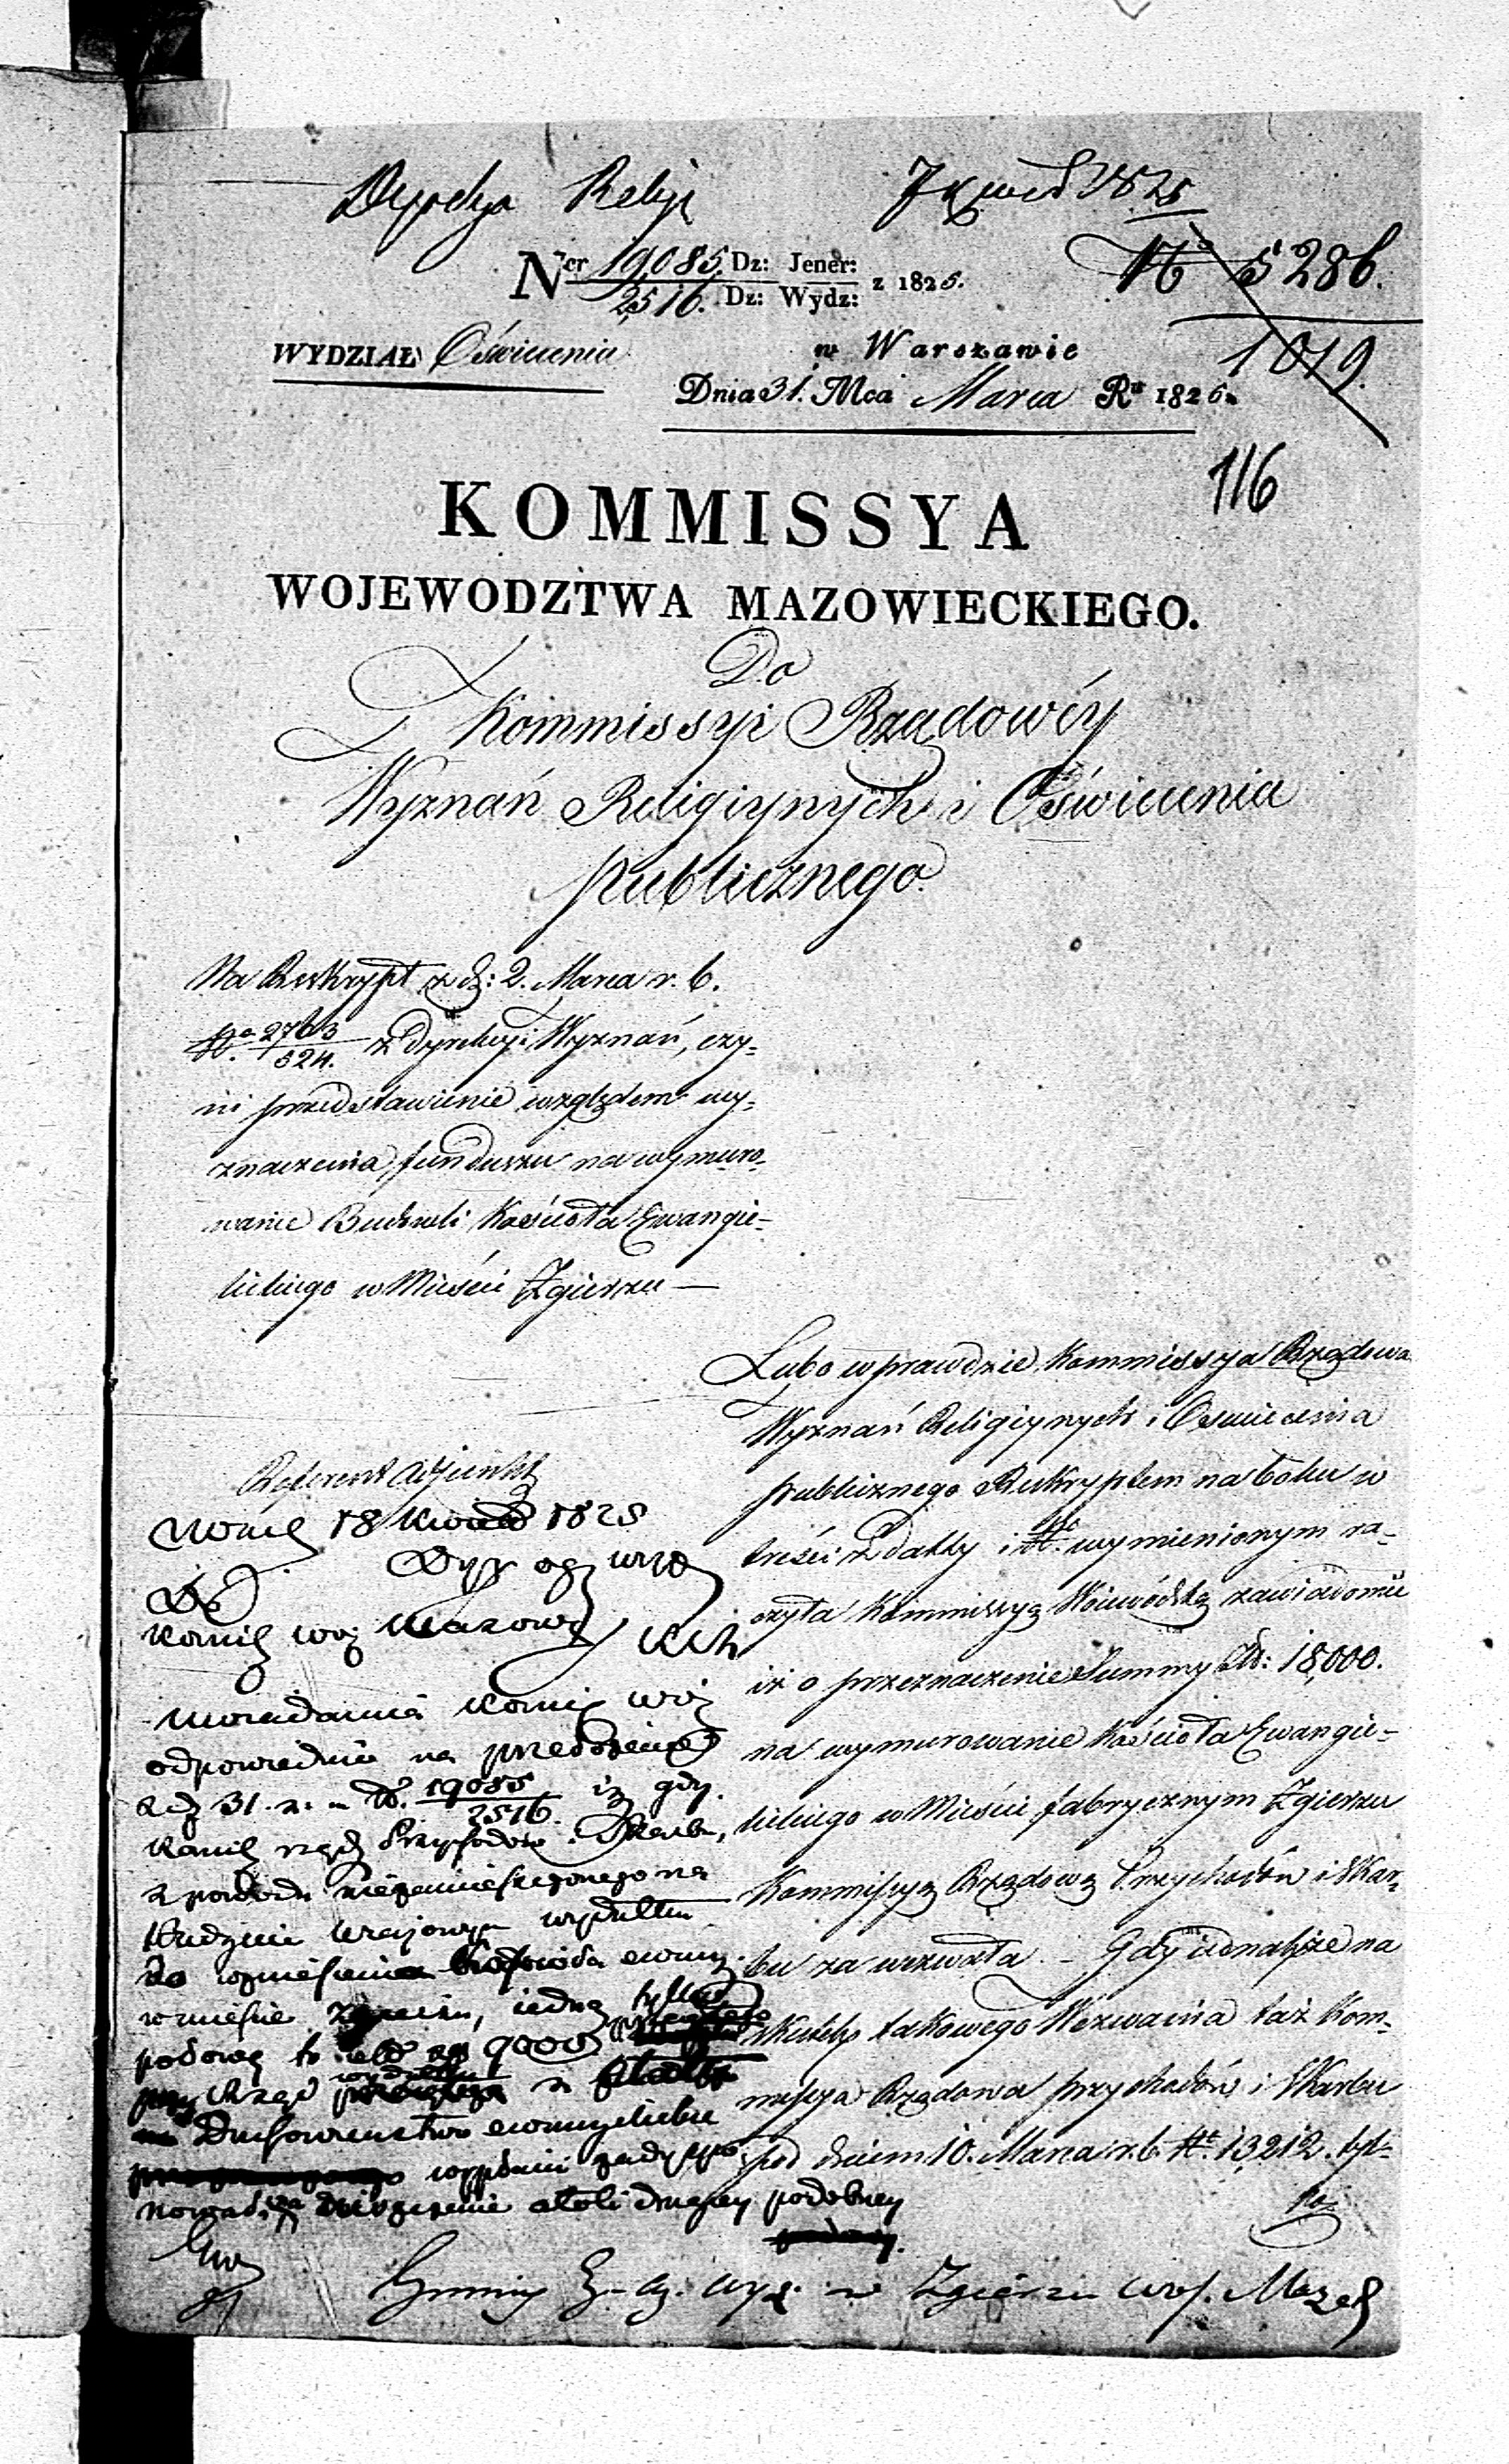 Dyrekcya Religi
7 Kwiet 1825
Ner 19,085. Dz: Jener:
2516. Dz: Wydz: z 1825.
No 5286.
1019.
WYDZIAŁ Oświecenia
w Warszawie
Dnia 31. Mca Marca Ru 1825.
116
KOMMISSYA
WOJEWODZTWA MAZOWIECKIEGO.
Do
Kommissyi Rządowéy
Wyznań Religiynych i Oświecenia
publicznego.
Na Reskrypt z d: 2. Marca r. b.
No 2763/524. z Dyrekcyi Wyznań, czy-
ni przedstawienie względem wy-
znaczenia funduszu na wymuro-
wanie Budowli Kościoła Ewangie-
lickiego w Mieście Zgierzu —
Lubo wprawdzie Kommissya Rządowa
Wyznań Religiynych i Oswiecenia
publicznego Reskryptem na boku w
treści z Datty i No wymienionym ra-
czyła Kommissyą Woiewódzką zawiadomić
iż o przeznaczenie Summy Złł: 18,000.
na wymurowanie Kościoła Ewangie-
lickiego w Mieście fabrycznym Zgierzu
Kommissyą Rządową Przychodów i Skar-
bu zawezwała. – Gdy iednakże na
skutek takowego Wezwania taż Kom-
missya Rządowa przychodów i Skarbu
pod dniem 10. Marca r. b. No 13212.
Referent
18 Kwiet 1825
Do
Kommis Woj Mazow
Uwiadamia Kommis Woj
odpowiednio na przedstawienie
z d 31. z. m. No. 19085/2516. iż gdy
Kommis rząd Przychodów i Skarbu,
z powodu niezamieszczonego na
Budżecie kraiowym wydatku
do wzniesienia Kościoła ewang.
w mieście Zgierzu, iedną tylko
połowę to iest 9000
Duchowieństwo ewangelickie
atoli drugiey podobney
w Zgierzu Woj. Mazow